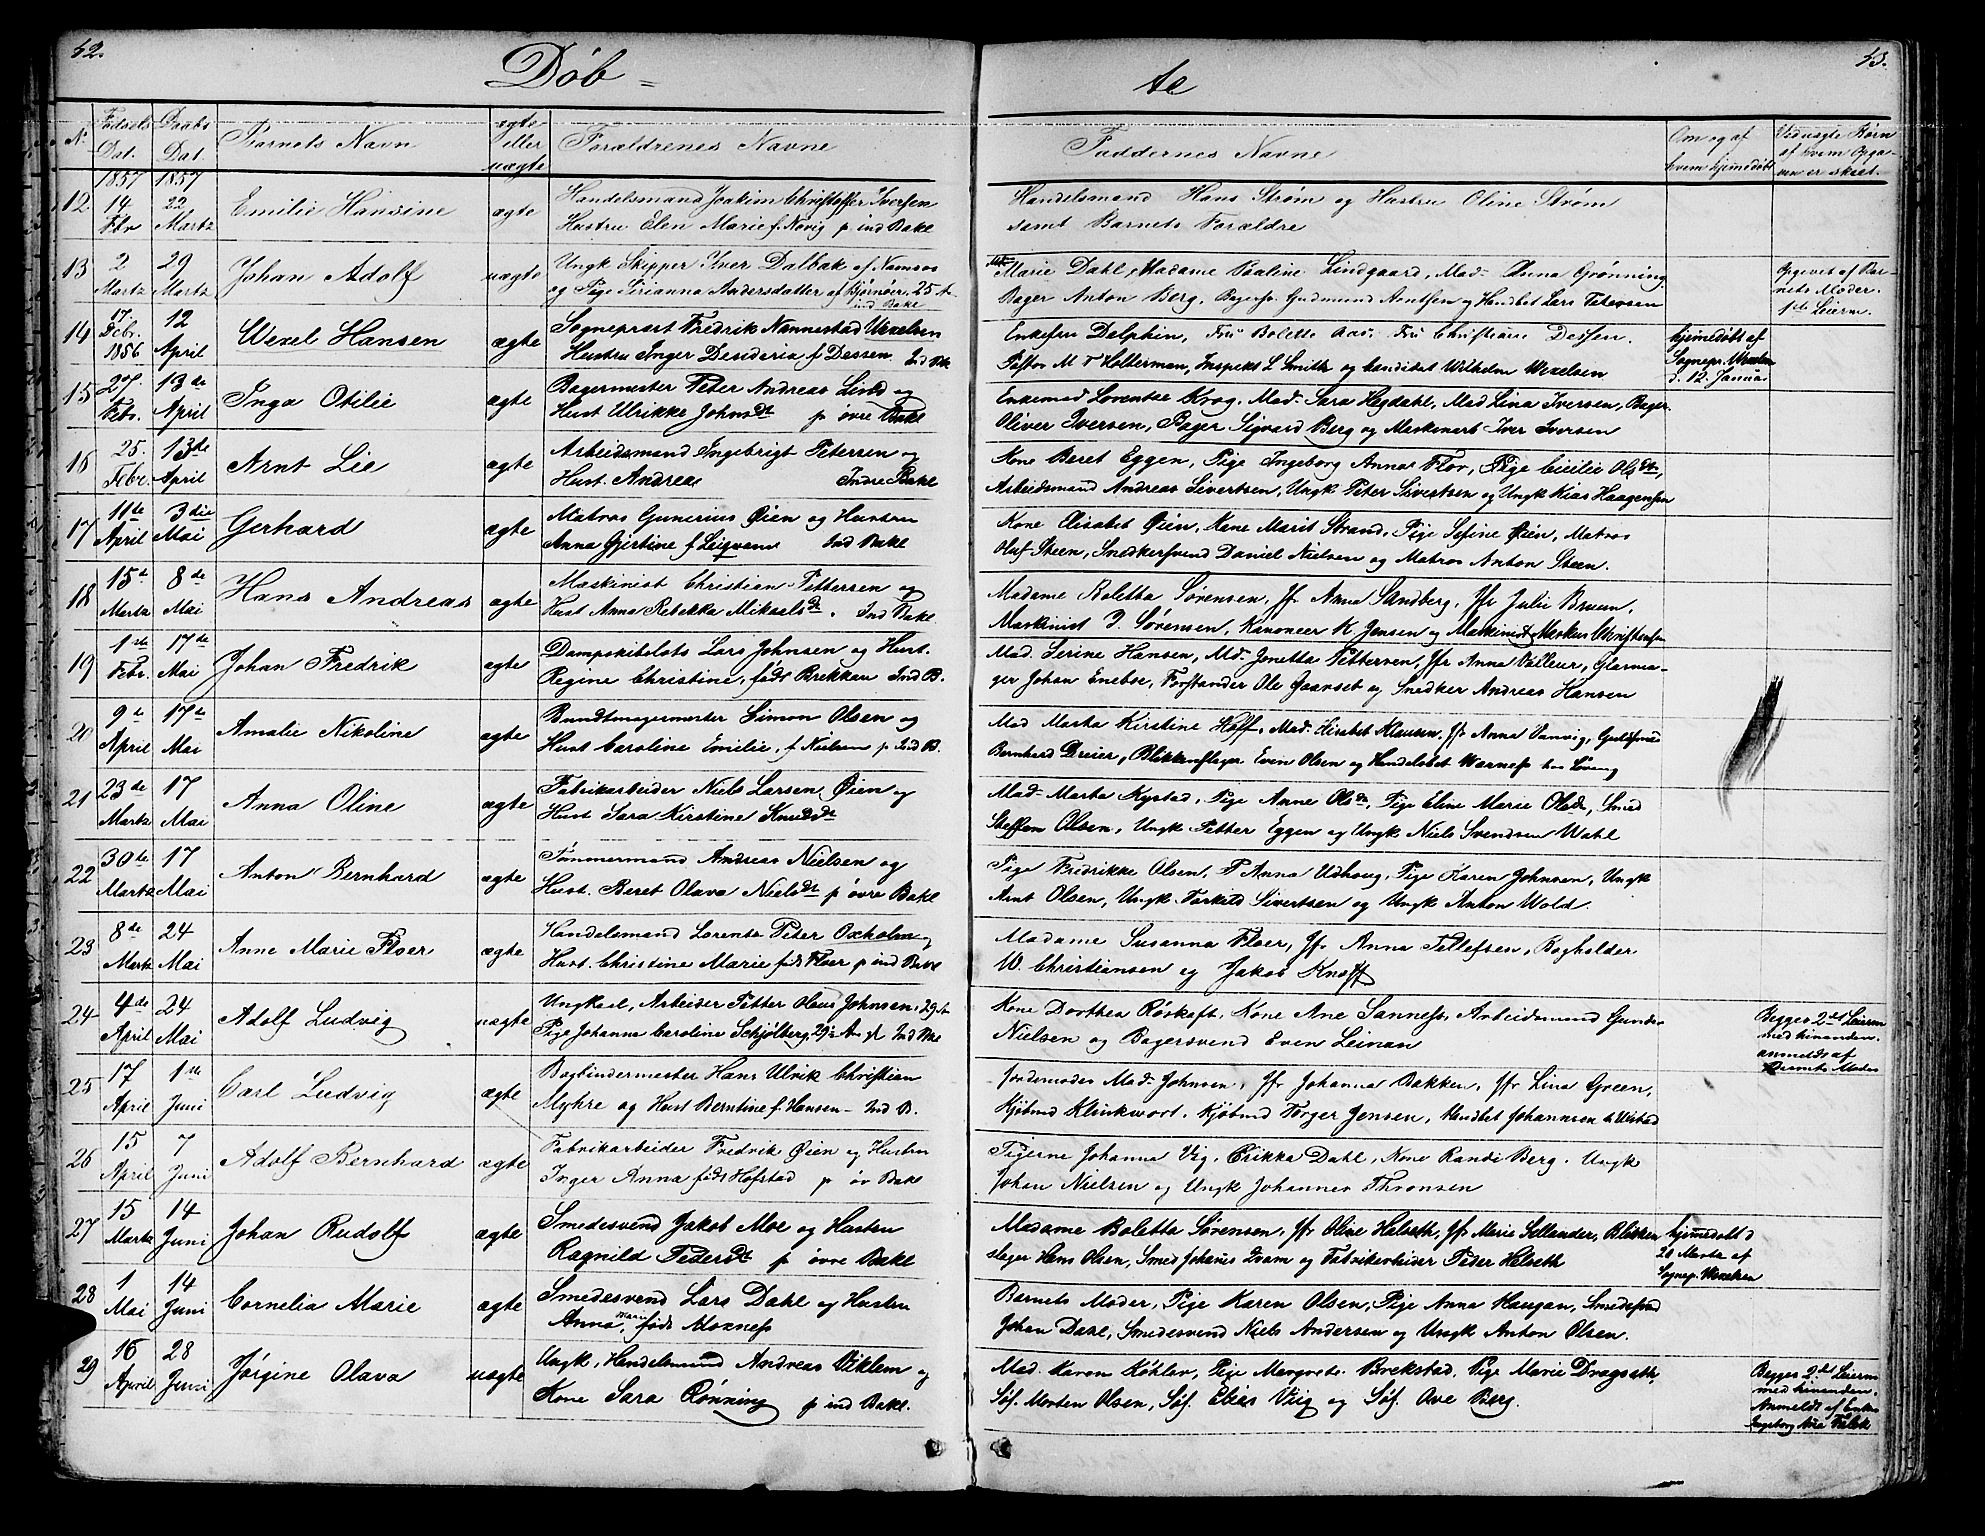 52.
53.
Døb =
te
N.
Fødsels Dat.
Daabs Dat
Barnets Navn
ægte eller uægte
Forældrenes Navne
Faddernes Navne
Om og af hvem hjemmedøbt
Ved uægte Børn af hvem Opgaven er skeet.
1857 1857
12 14 Fbr 22 Martz Emilie Hansine ægte Handelsmand Joakim Christoffer Iversen
Hustru Elen Marie f. Novig p ind Bakl
Handelsmand Hans Strøm og Hustru Oline Strøm
samt Barnets Forældre
13 2 Martz 29 Martz Johan Adolf uægte Ungk Skipper Iver Dalbak af Namsos
og Pige Sirianna Andersdatter af Bjørnør. 25 A
ind Bakl
Marie Dahl, Madame Pauline Lindgaard, Mad. Anna Grønning
Bager Anton Berg, Bagersv. Gudmund Arntsen og Handbet Lars Petersen
Opgevet af Bar-
nets Moder.
1ste Leierm.
14 17. Debr. 1856 12 April Wexel Hansen ægte Sognepræst Fredrik Nannestad Wexelsen
Hustru Inger Desideria f Dessen. Ind Bk
Enkefru Delphin, Fru Bolette Aas. Fru Christiane Dessen.
Pastor M T Holterman, Inspekt L Smith og Candidat Wilhelm Wexelsen
hjemedøbt af
Sognepr. Wexelsen
d. 12. Januar
15 27. Febr. 13de April Inga Otilie ægte Bagermester Peter Andreas Lind og
Hust Ulrikke Johnsdt p øvre Bakl
Enkemad Lorentse Krog. Mad. Sara Hegdahl, Mad Lina Iversen, Bager
Oliver Iversen, Bager Sigvard Berg og Maskinarb Iver Iversen
16 25. Febr. 13de April Arnt Lie ægte Arbeidsmand Ingebrigt Petersen og
Hust. Andrea Indre Bakl
Kone Beret Eggen, Pige Ingeborg Anna Flor, Pige Cicilie Olsdt,
Arbeidsmand Andreas Sivertsen, Ungk Peter Sivertsen og Ungk Kias Haagensen
17 11te April 3die Mai Gerhard ægte Matros Gunerius Øien og Hustru
Anna Gjertine f Leiqvam Ind Bakl
Kone Elisabet Øien, Kone Marit Strand, Pige Sofine Øien, Matros
Oluf Steen, Snedkersvend Daniel Nielsen og Matros Anton Steen.
18 15de Martz 8de Mai Hans Andreas ægte Maskinist Christian Pettersen og
Hust Anna Rebekka Mikkelsdt. Ind Bakl
Madame Boletta Sørensen, Jfr Anna Sandberg, Jfr Julie Bruun,
Maskinist I. Sørensen, Kanoneer K Jensen og Maskinist Markus Christensen
19 1ste Febr. 17de Mai Johan Fredrik ægte Dampskibslots Lars Johnsen og Hust.
Regine Christine, født Brekken Ind B.
Mad. Serine Hansen, Md. Jonetta Pettersen, Jfr Anna Valleur, Glarma-
ger Johan Eneboe, Forstander Ole Gaanset og Snedker Andreas Hansen
20 9de April 17de Mai Amalie Nikoline ægte Bundtmagermester Simon Olsen og
Hust Caroline Emilie, f Nielsen p Ind B.
Mad Marta Kirstine Hoff, Mad. Elisabet Klausen. Jfr Anna Vanvig, Guldsmed
Bernhard Dreier, Blikkenslager Even Olsen og Handelsbet Warness hos Løvaag
21 23de Martz 17 Mai Anna Oline ægte Fabrikarbeider Niels Larsen Øien og
Hust Sara Kirstine Knudsdt
Mad. Marta Rystad, Pige Anne Olsdt, Pige Eline Marie Olsdt, Smed
Steffen Olsen, Ungk Petter Eggen og Ungk Niels Svendsen Wahl
22 30te Martz 17 Mai Anton Bernhard ægte Tømmermand Andreas Nielsen og
Hust. Beret Olava Nielsdt p øvre Bakl
Pige Fredrikke Olsen, P Anna Udhoug, Pige Karen Johnsen, Ungk
Arnt Olsen, Ungk. Torkild Sivertsen og Ungk Anton Wold.
23 8de Martz 24 Mai Anne Marie Floer ægte Handelsmand Lorents Peter Oxholm og
Hust. Christine Marie født Floer p ind Bakl
Madame Susanna Floer, Jfr Anna Tellefsen, Bogholder
W. Christiansen og Jakob Knoff
24 4de April 24 Mai Adolf Ludvig uægte Ungkarl, Arbeider Petter Olaus Johnsen, 29 A
Pige Johanna Caroline Schjølberg, 29½ A. p Ind Bkl
Kone Dorthea Røskaft, Kone Ane Sanness, Arbeidsmand Gunder
Nielsen og Bagersvend Even Leinan
Begges 2det Leierm
med hinanden.
anmeldt af
Barnets Moder
25 17 April 1ste Juni Carl Ludvig ægte Bogbindermester Hans Ulrik Christian
Myhre og Hust Berntine f. Hansen - Ind B.
Jordemoder Mad. Johnsen, Jfr Johanna Bakken, Jfr Lina Green,
Kjøbmd Klinkwort, Kjøbmd Torger Jensen, Handbet Johannsen
26 15 April 7 Juni Adolf Bernhard ægte Fabrikarbeider Fredrik Øien og Hustru
Inger Anna født Hofstad p øv Bakl
Pigerne Johanna Vig, Erikka Dahl, Kone Randi Berg. Ungk
Johan Nielsen og Ungk Johannes Thronsen
27 15 Martz 14 Juni Johan Rudolf ægte Smedesvend Jakob Moe og Hustru
Ragnild Pedersdt p øvre Bakl
Madame Boletta Sørensen, Jfr Oline Halseth, Jfr Marie Sellander, Blikken
slager Hans Olsen, Smed Johanis Tram og Fabrikarbeider Peder Halseth
hjemedøbt d
28 Martz af
Sognep. Wexelsen
28 1 Mai 14 Juni Cornelia Marie ægte Smedesvend Lars Dahl og Hustru
Anna Marie, født Moxness
Barnets Moder, Pige Karen Olsen, Pige Anna Haugan, Smedesvnd
Johan Dahl, Smedesvend Niels Andersen og Ungk Anton Olsen.
29 16 April 28 Juni Jørgine Olava uægte Ungk, Handelsmand Andreas Viklem og
Kone Sara Rønning p ind Bakl.
Mad. Karen Køhler, Pige Margrete Brekstad, Pige Marie Dragseth,
Søf. Morten Olsen, Søf. Elias Viig og Søf. Ove Berg.
Begges 2det Leierm
med hinanden.
Anmeldt af Enke
Ingeborg Ana Falck